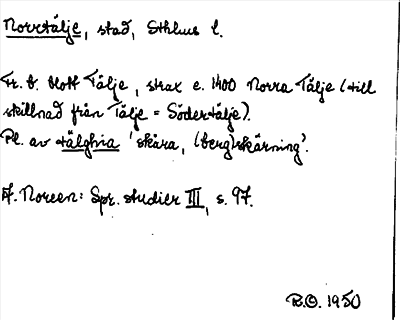 Norrtälje, stad, Sthlms l.
Fr. b. blott Tälje, strax e. 1400 Norra Tälje (till
skillnad från Tälje = Södertälje).
Pl. av tälghia 'skåra, (berg)skärning'.
A. Noreen: Spr. studier III, s. 97.
R.O. 1950